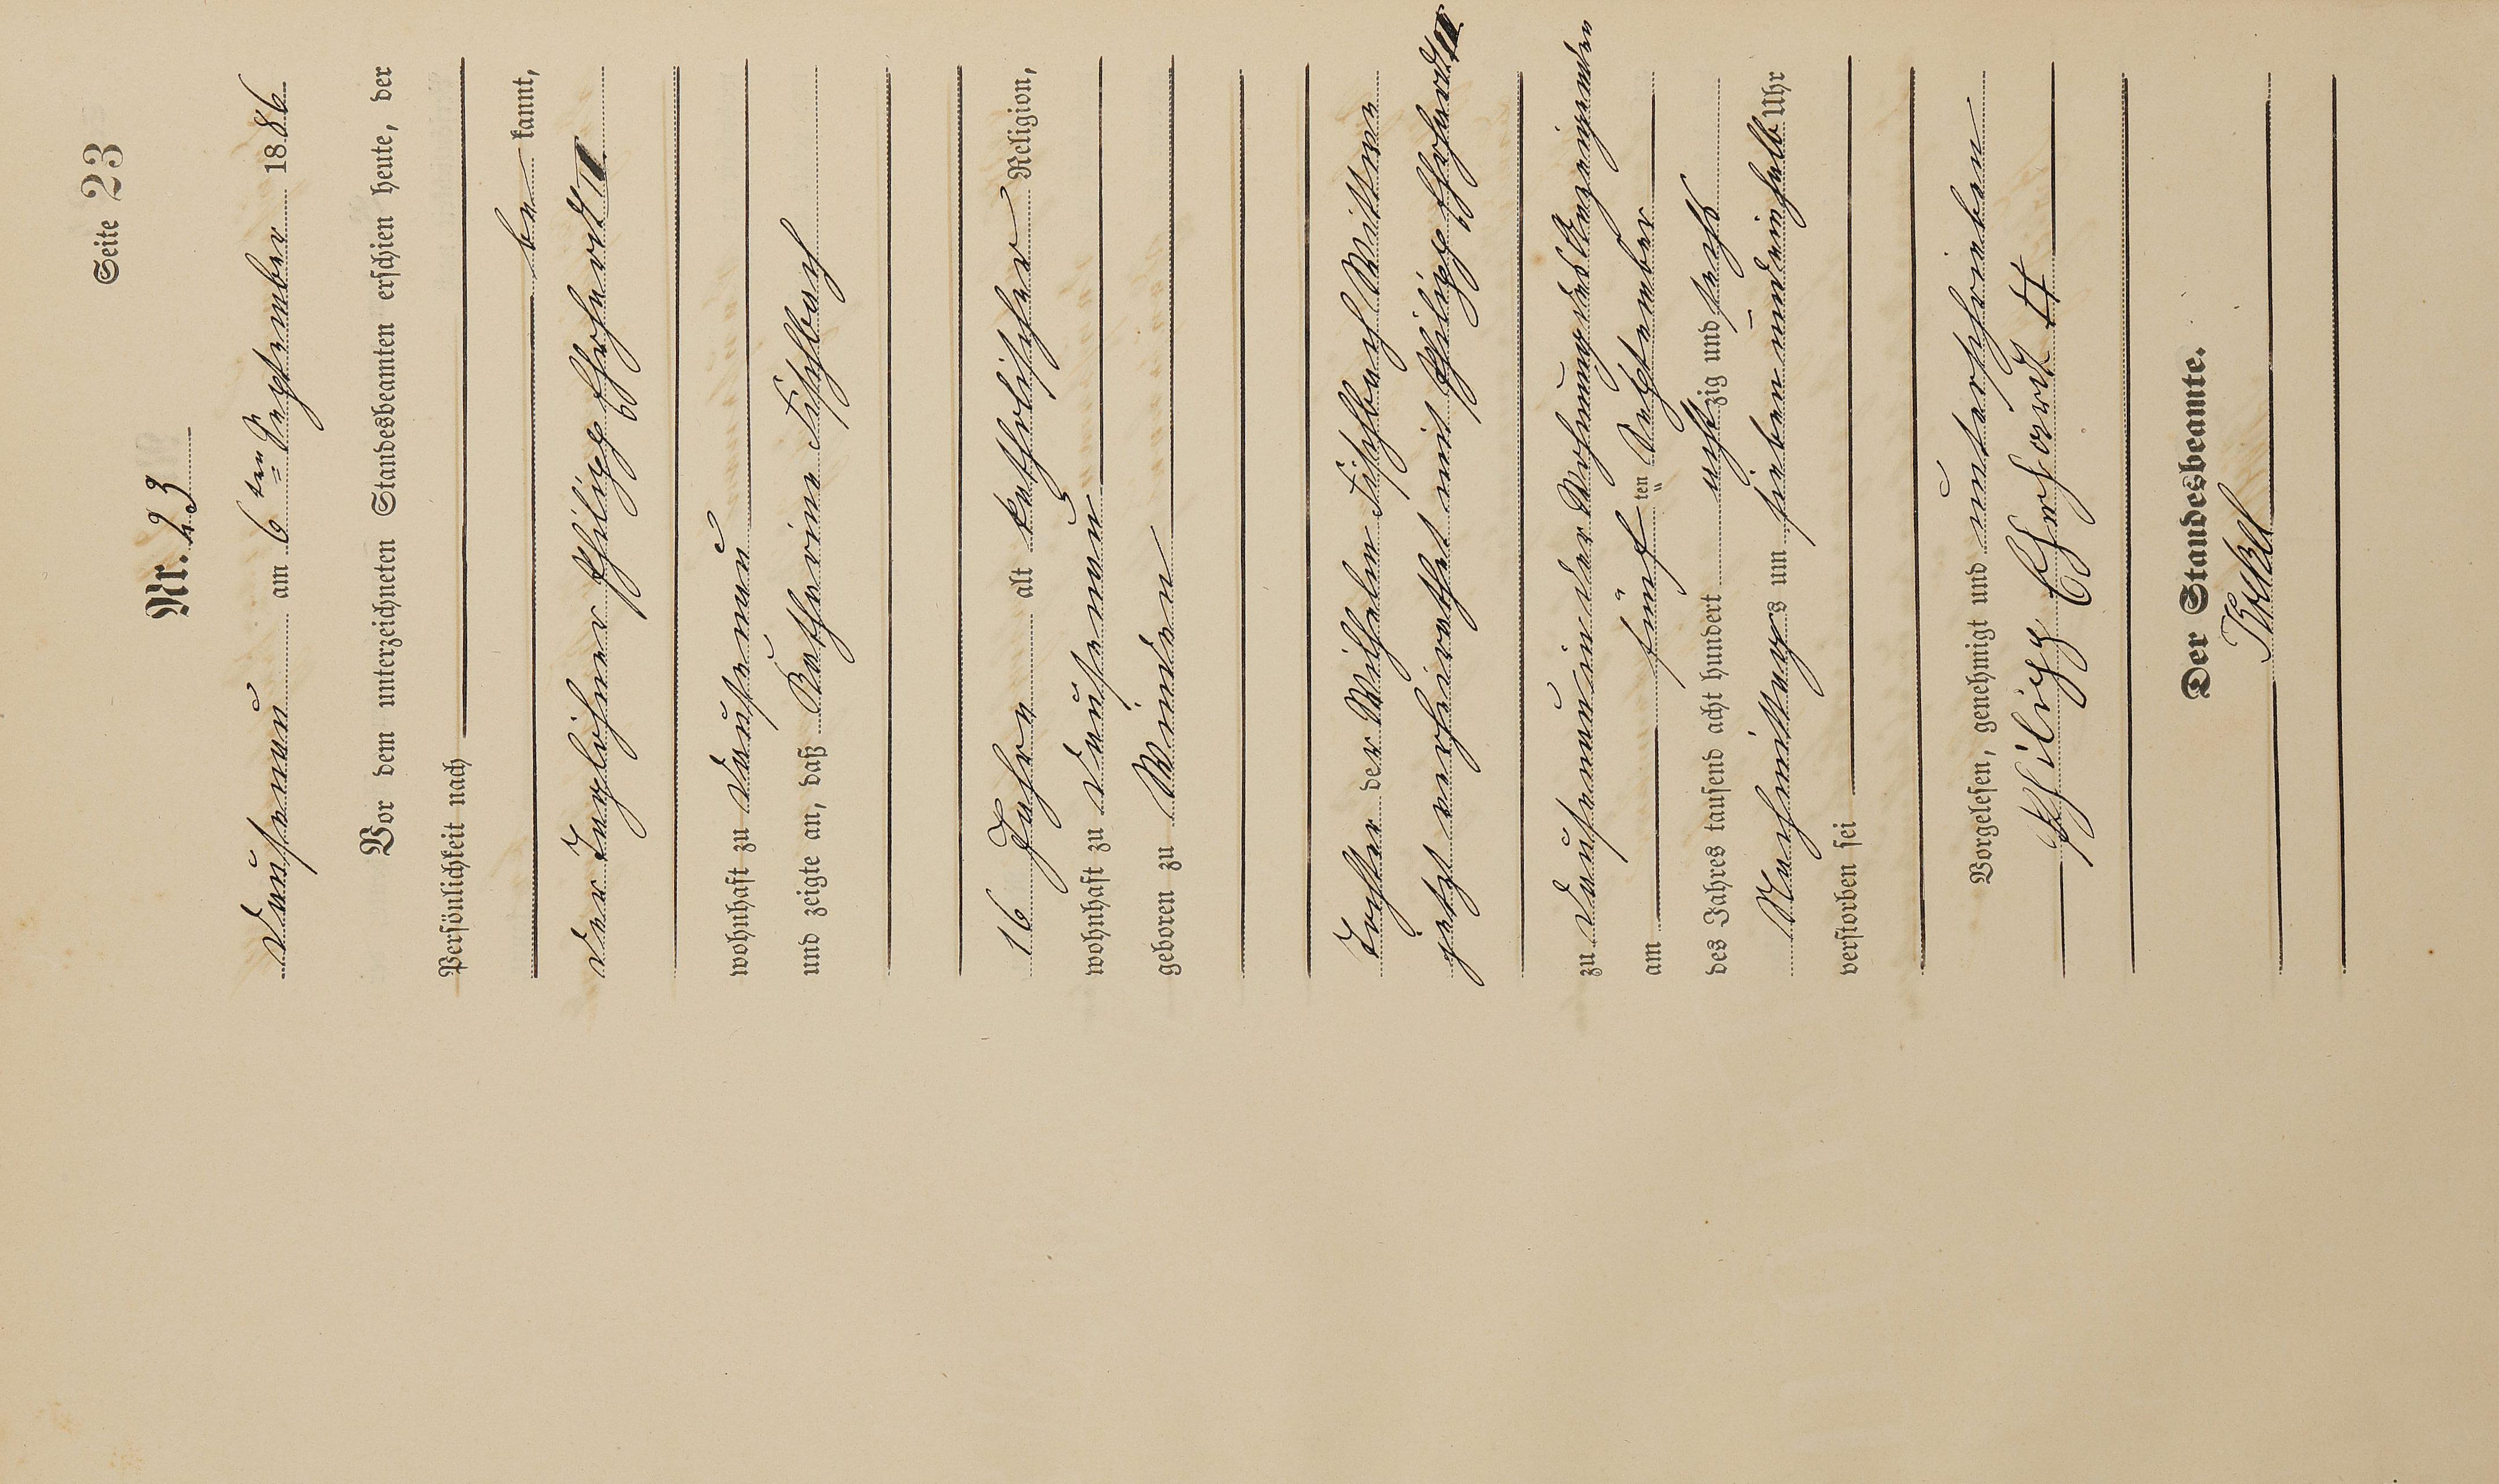 Seite 23
Nr. 23
Dausenau am 6ten September 1886
Vor dem unterzeichneten Standesbeamten erschien heute, der
Persönlichkeit nach
be kannt,
der Taglöhner Philipp Ehrhardt II
wohnhaft zu Dausenau
und zeigte an, daß Katharina Fischbach
16 Jahre alt katholischer Religion,
wohnhaft zu Dausenau
geboren zu Winden
Tochter der Wilhelm Fischbach Wittwe
jetzt verheirathet mit Philipp Ehrhardt II
zu Dausenau in der Wohnung des Anzeigenden
am fünf ten September
des Jahres tausend acht hundert achtzig und sechs
Nachmittags um sieben und ein halb Uhr
verstorben sei
Vorgelesen, genehmigt und unterschrieben
Philipp Ehrhardt II
Der Standesbeamte.